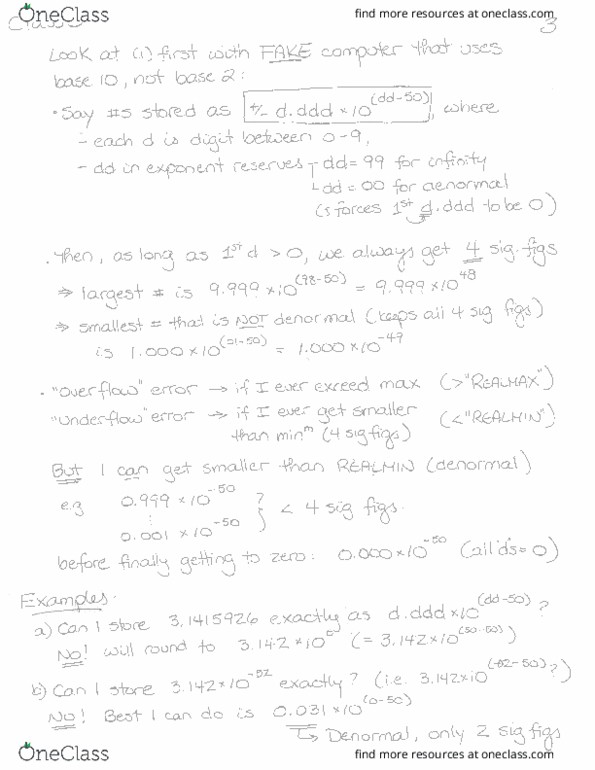 OneClass
find more resources at oneclass.com
3
Look at (1) first with FAKE computer that uses
base 10, not base 2:
• Say #s stored as +/- d.ddd × 10^(dd-50), where
- each d is digit between 0-9,
- dd in exponent reserves - dd = 99 for infinity
- dd = 00 for denormal
(s forces 1st d.ddd to be 0)
• Then, as long as 1st d > 0, we always get 4 sig. figs
⇒ largest # is 9.999 × 10^(98-50) = 9.999 × 10^48
⇒ smallest # that is NOT denormal (keeps all 4 sig figs)
is 1.000 × 10^(01-50) = 1.000 × 10^-49
• "Overflow" error → if I ever exceed max (>"REALMAX")
"Underflow" error → if I ever get smaller (<"REALMIN")
than min^m (4 sig figs)
But I can get smaller than REALMIN (denormal)
e.g 0.999 × 10^-50 ?
⋮ } < 4 sig figs.
0.001 × 10^-50
before finally getting to zero: 0.000 × 10^-50 (all d's = 0)
Examples.
a) Can I store 3.1415926 exactly as d.ddd × 10^(dd-50) ?
No! will round to 3.142 × 10^0 (= 3.142 × 10^(50-50))
b) Can I store 3.142 × 10^-52 exactly? (i.e. 3.142 × 10^(-02-50) ?)
No! Best I can do is 0.031 × 10^(0-50)
↳ Denormal, only 2 sig figs
OneClass
find more resources at oneclass.com